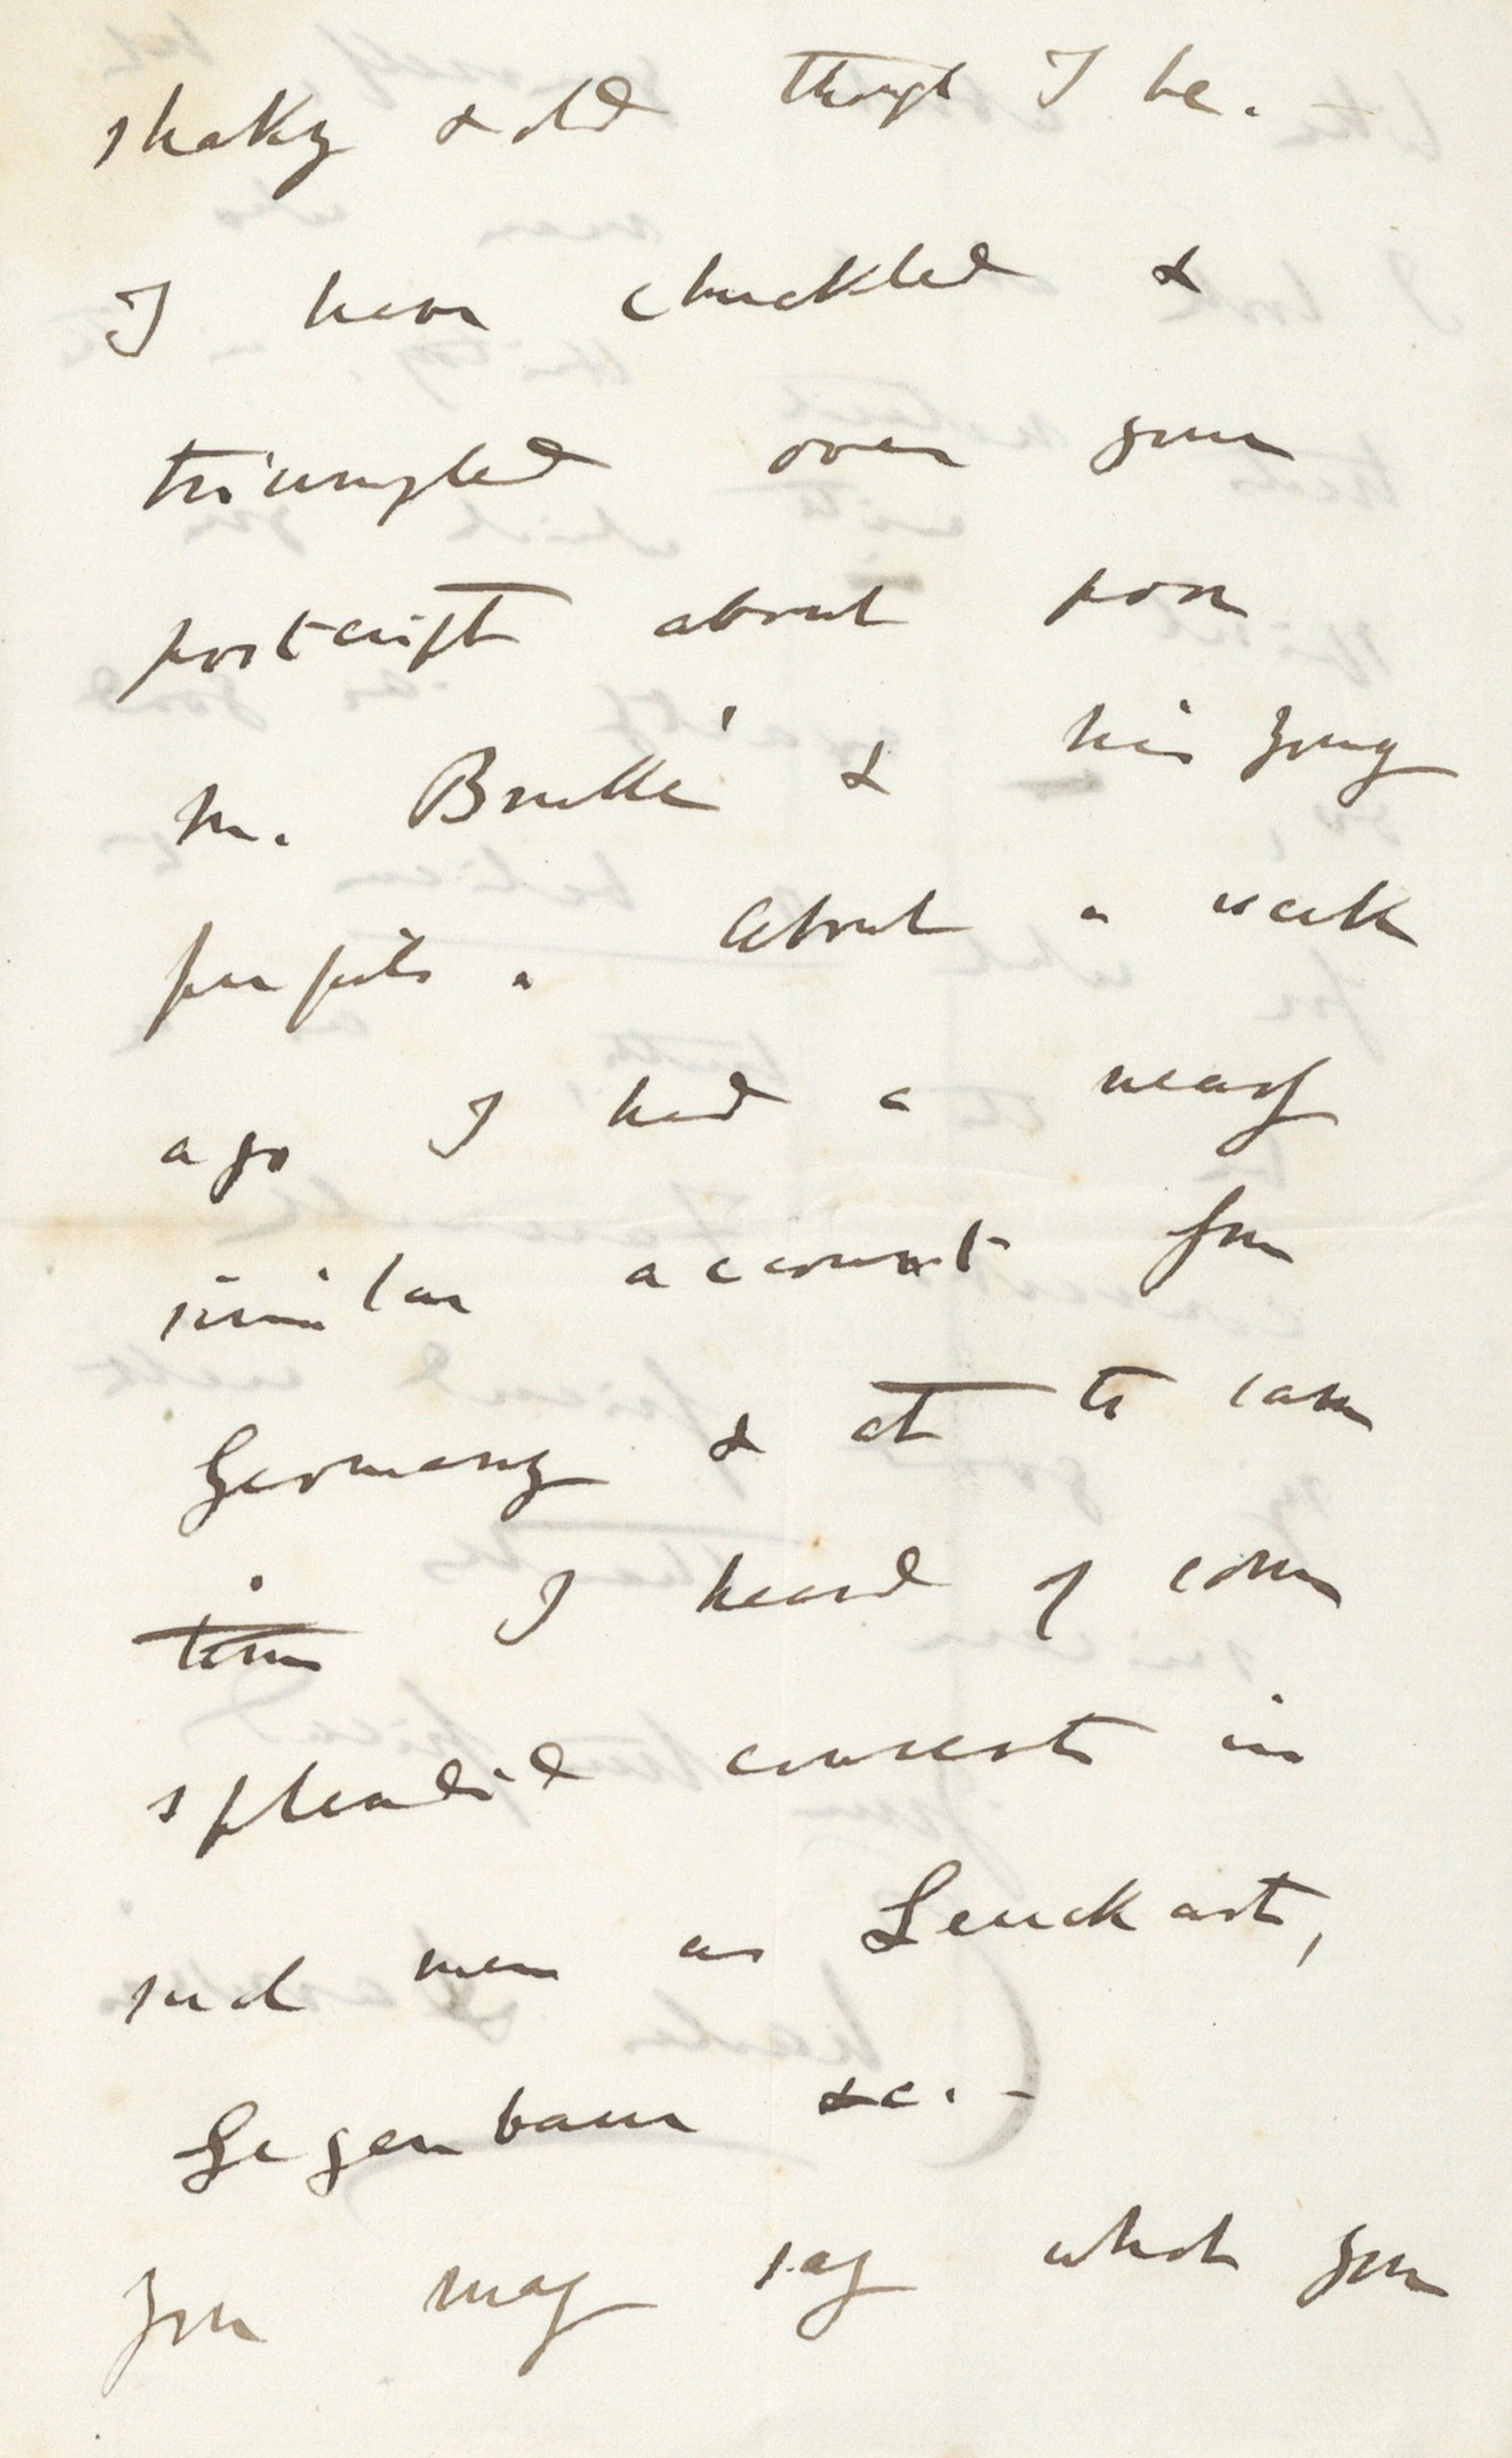 shaky & old though I be.
I have chuckled &
triumphed over your
postcript about poor
M. Brullé & his young
pupils. About a week
ago I had a nearly
similar account from
Germany & at the same
time I heard of some
splendid converts in
such men as Leuckart,
Gegenbaur &c. –
You may say what you